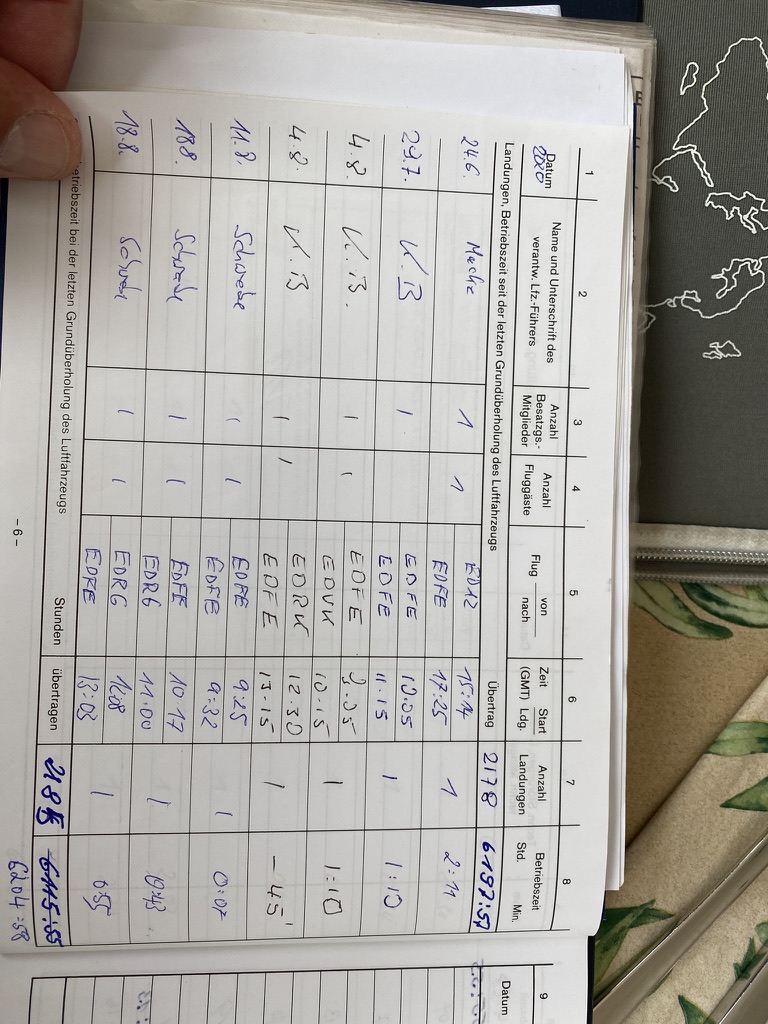 1 2 3 4 5 6 7 8
Datum Name und Unterschrift des verantw. Lfz.-Führers Anzahl Besatzgs.-Mitglieder Anzahl Fluggäste Flug von nach Zeit (GMT) Start Ldg. Anzahl Landungen Betriebszeit Std. Min.
2020
Landungen, Betriebszeit seit der letzten Grundüberholung des Luftfahrzeugs Übertrag 2178 6197:57
24.6. 1 1 15:14 1 2:11
EDFE 17:25
29.7. K.B 1 EDFE 10.05 1 1:10
EDFE 11.15
4.8. K.B. 1 1 EDFE 9.05 1 1:10
10.15
4.8. K.B 1 1 12.30 1 - 45'
EDFE 13.15
11.8 Schwede 1 1 EDFE 9:25 1 0:07
EDFE 9:32
18.8. Schwede 1 1 EDFE 10:17 1 0:43
EDRG 11:00
18.8. 1 1 EDRG 12:08 1 0:55
EDFE 13:03
etriebszeit bei der letzten Grundüberholung des Luftfahrzeugs Stunden übertragen 6115:55
6204:58
- 6 -
9
Datum